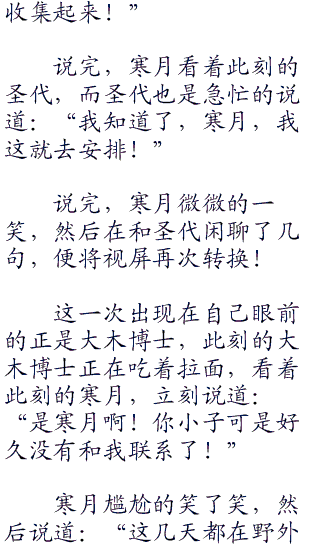 收集起来！”
说完，寒月看着此刻的
圣代，而圣代也是急忙的说
道：“我知道了，寒月，我
这就去安排！”
说完，寒月微微的一
笑，然后在和圣代闲聊了几
句，便将视屏再次转换！
这一次出现在自己眼前
的正是大木博士，此刻的大
木博士正在吃着拉面，看着
此刻的寒月，立刻说道：
“是寒月啊！你小子可是好
久没有和我联系了！”
寒月尴尬的笑了笑，然
后说道：“这几天都在野外